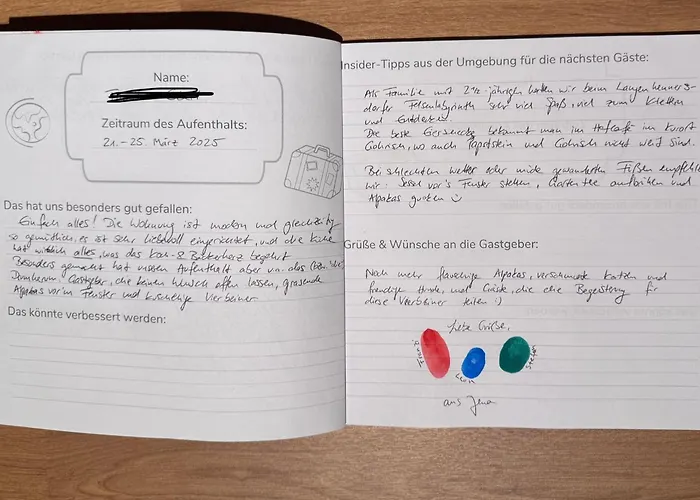 Name:
Zeitraum des Aufenthalts:
21. - 25. März 2025
Das hat uns besonders gut gefallen:
Einfach alles! Die Wohnung ist modern und gleichzeitig
so gemütlich, es ist sehr liebevoll eingerichtet, und die Küche
hat wirklich alles, was das Koch- & Bäckerherz begehrt
Besonders gemacht hat unseren Aufenthalt aber
Gastgeber, die keinen Wunsch offen lassen, grasende
Alpakas vor'm Fenster und kuschelige Vierbeiner
Das könnte verbessert werden:
Insider-Tipps aus der Umgebung für die nächsten Gäste:
Als Familie mit 2 ½-jährigen hatten wir beim Langenhenners-
dorfer Felsenlabyrinth sehr viel Spaß, viel zum Klettern
und Entdecken.
Die beste bekommt man im Hofcafé im Kurort
Gohrisch, wo auch Papststein und Gohrisch nicht weit sind.
Bei schlechtem Wetter oder müde gewanderten Füßen empfehlen
wir: Sessel vor's Fenster stellen, Tee aufbrühen und
Alpakas gucken ☺
Grüße & Wünsche an die Gastgeber:
Noch mehr flauschige Alpakas, verschmuste Katzen und
freudige Hunde, und Gäste, die die Begeisterung für
diese Vierbeiner teilen :)
Liebe Grüße,
Leon
Stefan
aus Jena